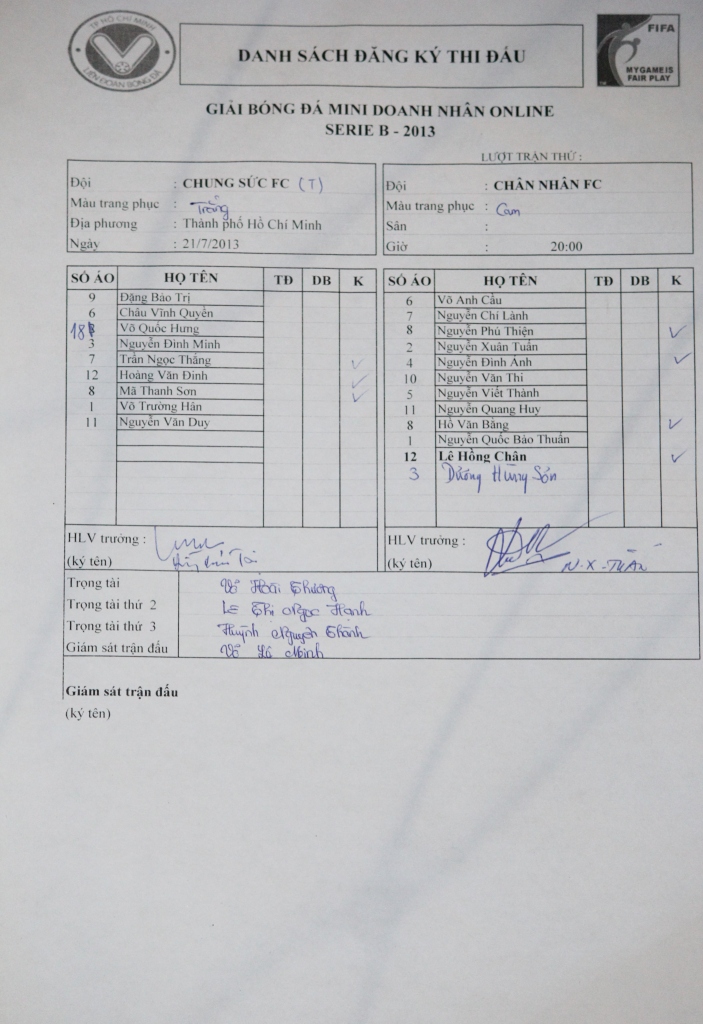 TP HỒ CHÍ MINH
LIÊN ĐOÀN BÓNG ĐÁ
DANH SÁCH ĐĂNG KÝ THI ĐẤU
FIFA
MY GAME IS
FAIR PLAY
GIẢI BÓNG ĐÁ MINI DOANH NHÂN ONLINE
SERIE B - 2013
LƯỢT TRẬN THỨ :
Đội : CHUNG SỨC FC (T)
Màu trang phục : Trắng
Địa phương : Thành phố Hồ Chí Minh
Ngày : 21/7/2013
Đội : CHÂN NHÂN FC
Màu trang phục : Cam
Sân :
Giờ : 20:00
SỐ ÁO HỌ TÊN TĐ DB K
9 Đặng Bảo Trị
6 Châu Vĩnh Quyền
18 Võ Quốc Hưng
3 Nguyễn Đình Minh
7 Trần Ngọc Thắng ✓
12 Hoàng Văn Đinh ✓
8 Mã Thanh Sơn ✓
1 Võ Trường Hân
11 Nguyễn Văn Duy
SỐ ÁO HỌ TÊN TĐ DB K
6 Võ Anh Cầu
7 Nguyễn Chí Lành
8 Nguyễn Phú Thiện ✓
2 Nguyễn Xuân Tuấn
4 Nguyễn Đình Ánh ✓
10 Nguyễn Văn Thi
5 Nguyễn Viết Thành
11 Nguyễn Quang Huy
8 Hồ Văn Bằng ✓
1 Nguyễn Quốc Bảo Thuấn
12 Lê Hồng Chân ✓
3 Dương Hùng Sơn
HLV trưởng :
(ký tên)
HLV trưởng :
(ký tên) N-X-TUẤN
Trọng tài Võ Hoài Phương
Trọng tài thứ 2 Lê Thị Ngọc Hạnh
Trọng tài thứ 3 Huỳnh Nguyên Thành
Giám sát trận đấu Võ Lê Minh
Giám sát trận đấu
(ký tên)